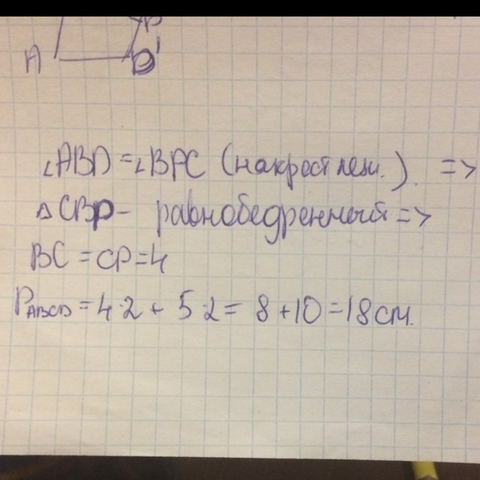 P
A D
∠ABD = ∠BPC (накрест леж.) =>
△CBP - равнобедренный =>
BC = CP = 4
P ABCD = 4·2 + 5·2 = 8 + 10 = 18 см.